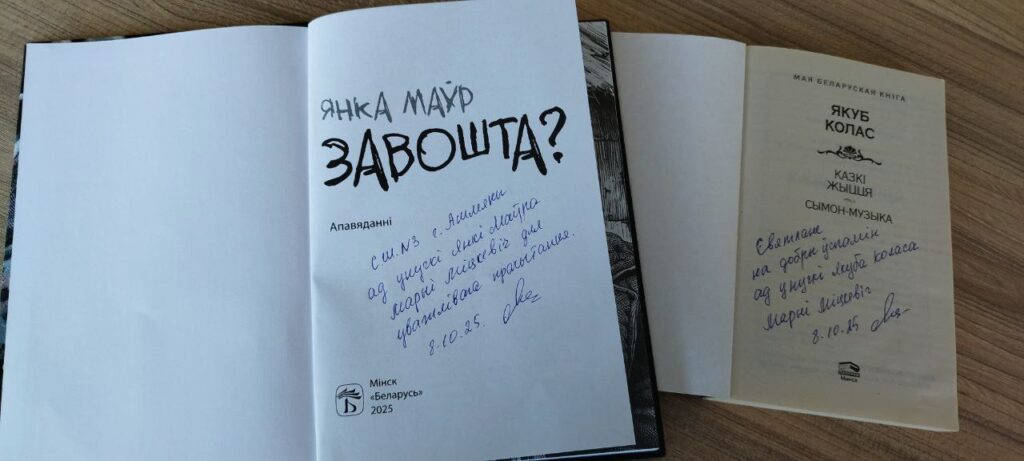 ЯНКА МАЎР
ЗАВОШТА?
Апавяданні
СШ №3 г. Ашмяны
ад унучкі Янкі Маўра
Марыі Міцкевіч для
уважлівага прачытання.
8.10.25.
Мінск
«Беларусь»
2025
МАЯ БЕЛАРУСКАЯ КНІГА
ЯКУБ
КОЛАС
КАЗКІ
ЖЫЦЦЯ
СЫМОН-МУЗЫКА
Святлане
на добры ўспамін
ад унучкі Якуба Коласа
Марыі Міцкевіч
8.10.25
Мінск